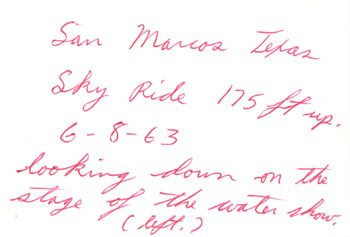 San Marcos Texas
Sky Ride 175 ft up.
6-8-63
looking down on the
stage of the water show.
(left.)